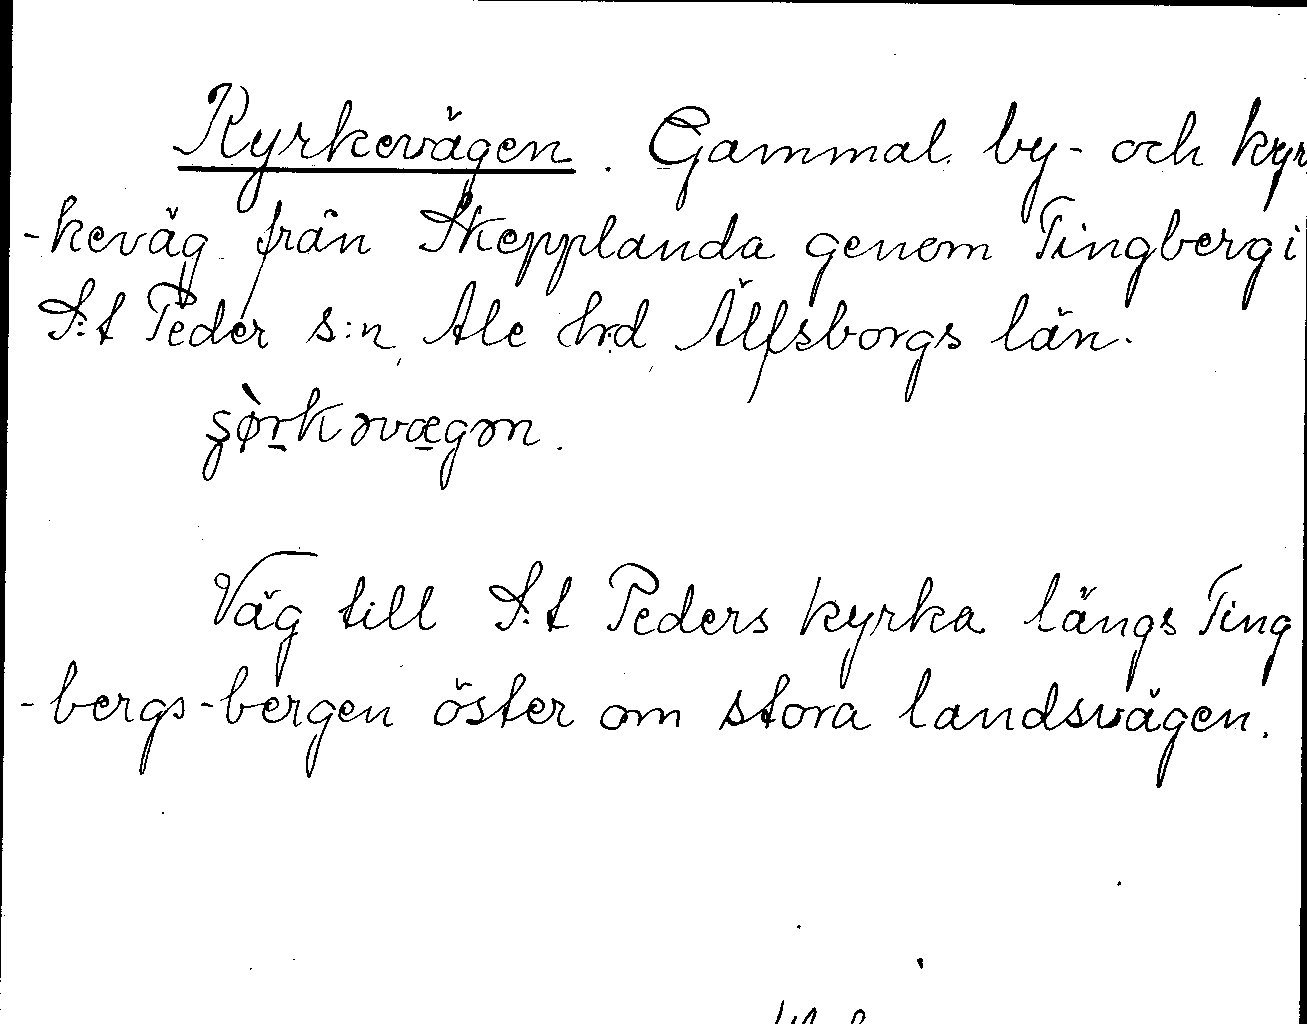 Kyrkevägen. Gammal by- och kyr
-keväg från Skepplanda genom Tingberg i
S:t Peder s:n, Ale hd, Älfsborgs län.
şø̀rkəvægən.
Väg till S:t Peders kyrka längs Ting
-bergs-bergen öster om stora landsvägen.